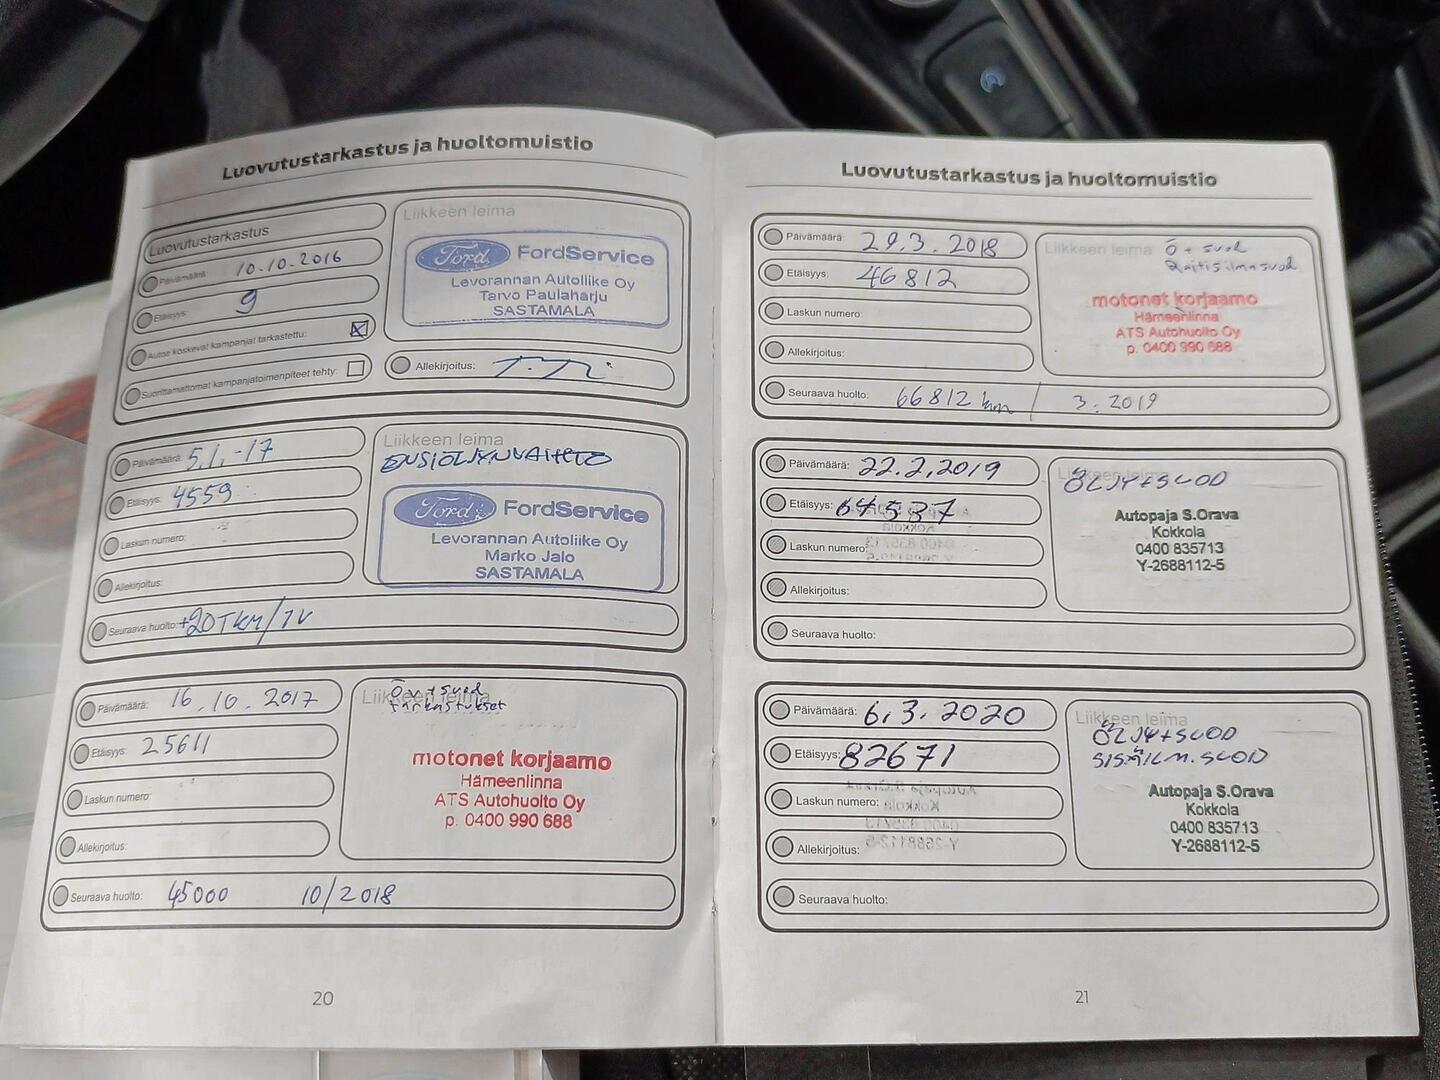 Luovutustarkastus ja huoltomuistio
Luovutustarkastus
Päivämäärä: 10.10.2016
Etäisyys: 9
Autoa koskevat kampanjat tarkastettu:
Suorittamattomat kampanjatoimenpiteet tehty:
Liikkeen leima
Ford FordService
Levorannan Autoliike Oy
Tarvo Paulaharju
SASTAMALA
Allekirjoitus:
Päivämäärä: 5.1.-17
Etäisyys: 4559
Laskun numero:
Allekirjoitus:
Seuraava huolto: +20TKM/1V
Liikkeen leima
ENSIÖLJYNVAIHTO
Ford FordService
Levorannan Autoliike Oy
Marko Jalo
SASTAMALA
Päivämäärä: 16.10.2017
Etäisyys: 25611
Laskun numero:
Allekirjoitus:
Seuraava huolto: 45000 10/2018
Liikkeen leima
Öv + suod
tarkastukset
motonet korjaamo
Hämeenlinna
ATS Autohuolto Oy
p. 0400 990 688
20
Luovutustarkastus ja huoltomuistio
Päivämäärä: 29.3.2018
Etäisyys: 46812
Laskun numero:
Allekirjoitus:
Seuraava huolto: 66812 km / 3.2019
Liikkeen leima Ö + suod
Raitisilmasuod
motonet korjaamo
Hämeenlinna
ATS Autohuolto Oy
p. 0400 990 688
Päivämäärä: 22.2.2019
Etäisyys: 64537
Laskun numero:
Allekirjoitus:
Seuraava huolto:
Liikkeen leima
ÖLJY+SUOD
Autopaja S.Orava
Kokkola
0400 835713
Y-2688112-5
Päivämäärä: 6.3.2020
Etäisyys: 82671
Laskun numero:
Allekirjoitus:
Seuraava huolto:
Liikkeen leima
ÖLJY+SUOD
SISÄILM.SUOD
Autopaja S.Orava
Kokkola
0400 835713
Y-2688112-5
21